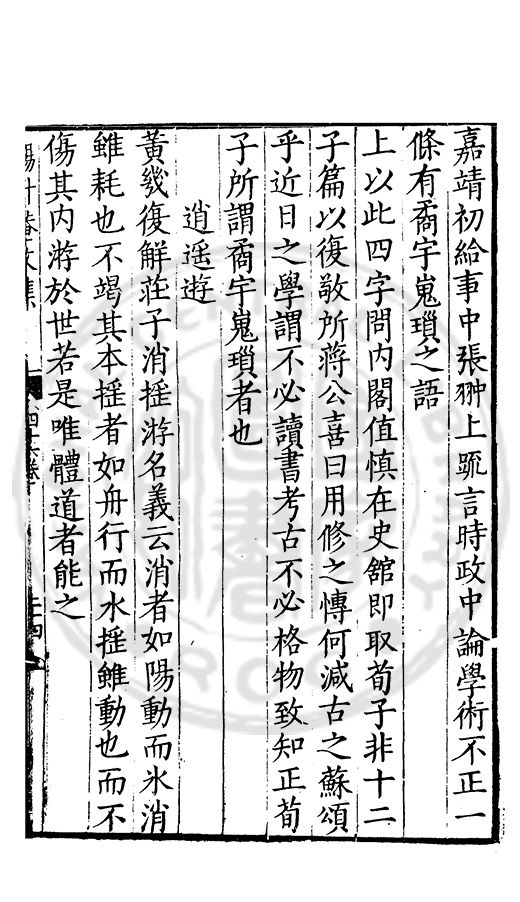 嘉靖初給事中張翀上䟽言時政中論學術不正一
條有矞宇嵬瑣之語
上以此四字問内閣值慎在史舘即取荀子非十二
子篇以復敬所蔣公喜曰用修之慱何減古之蘇頌
乎近日之學謂不必讀書考古不必格物致知正荀
子所謂矞宇嵬瑣者也
逍遥遊
黃㡬復解莊子消摇游名義云消者如陽動而氷消
雖耗也不竭其本摇者如舟行而水摇雖動也而不
傷其内游於世若是唯體道者能之
四十六卷